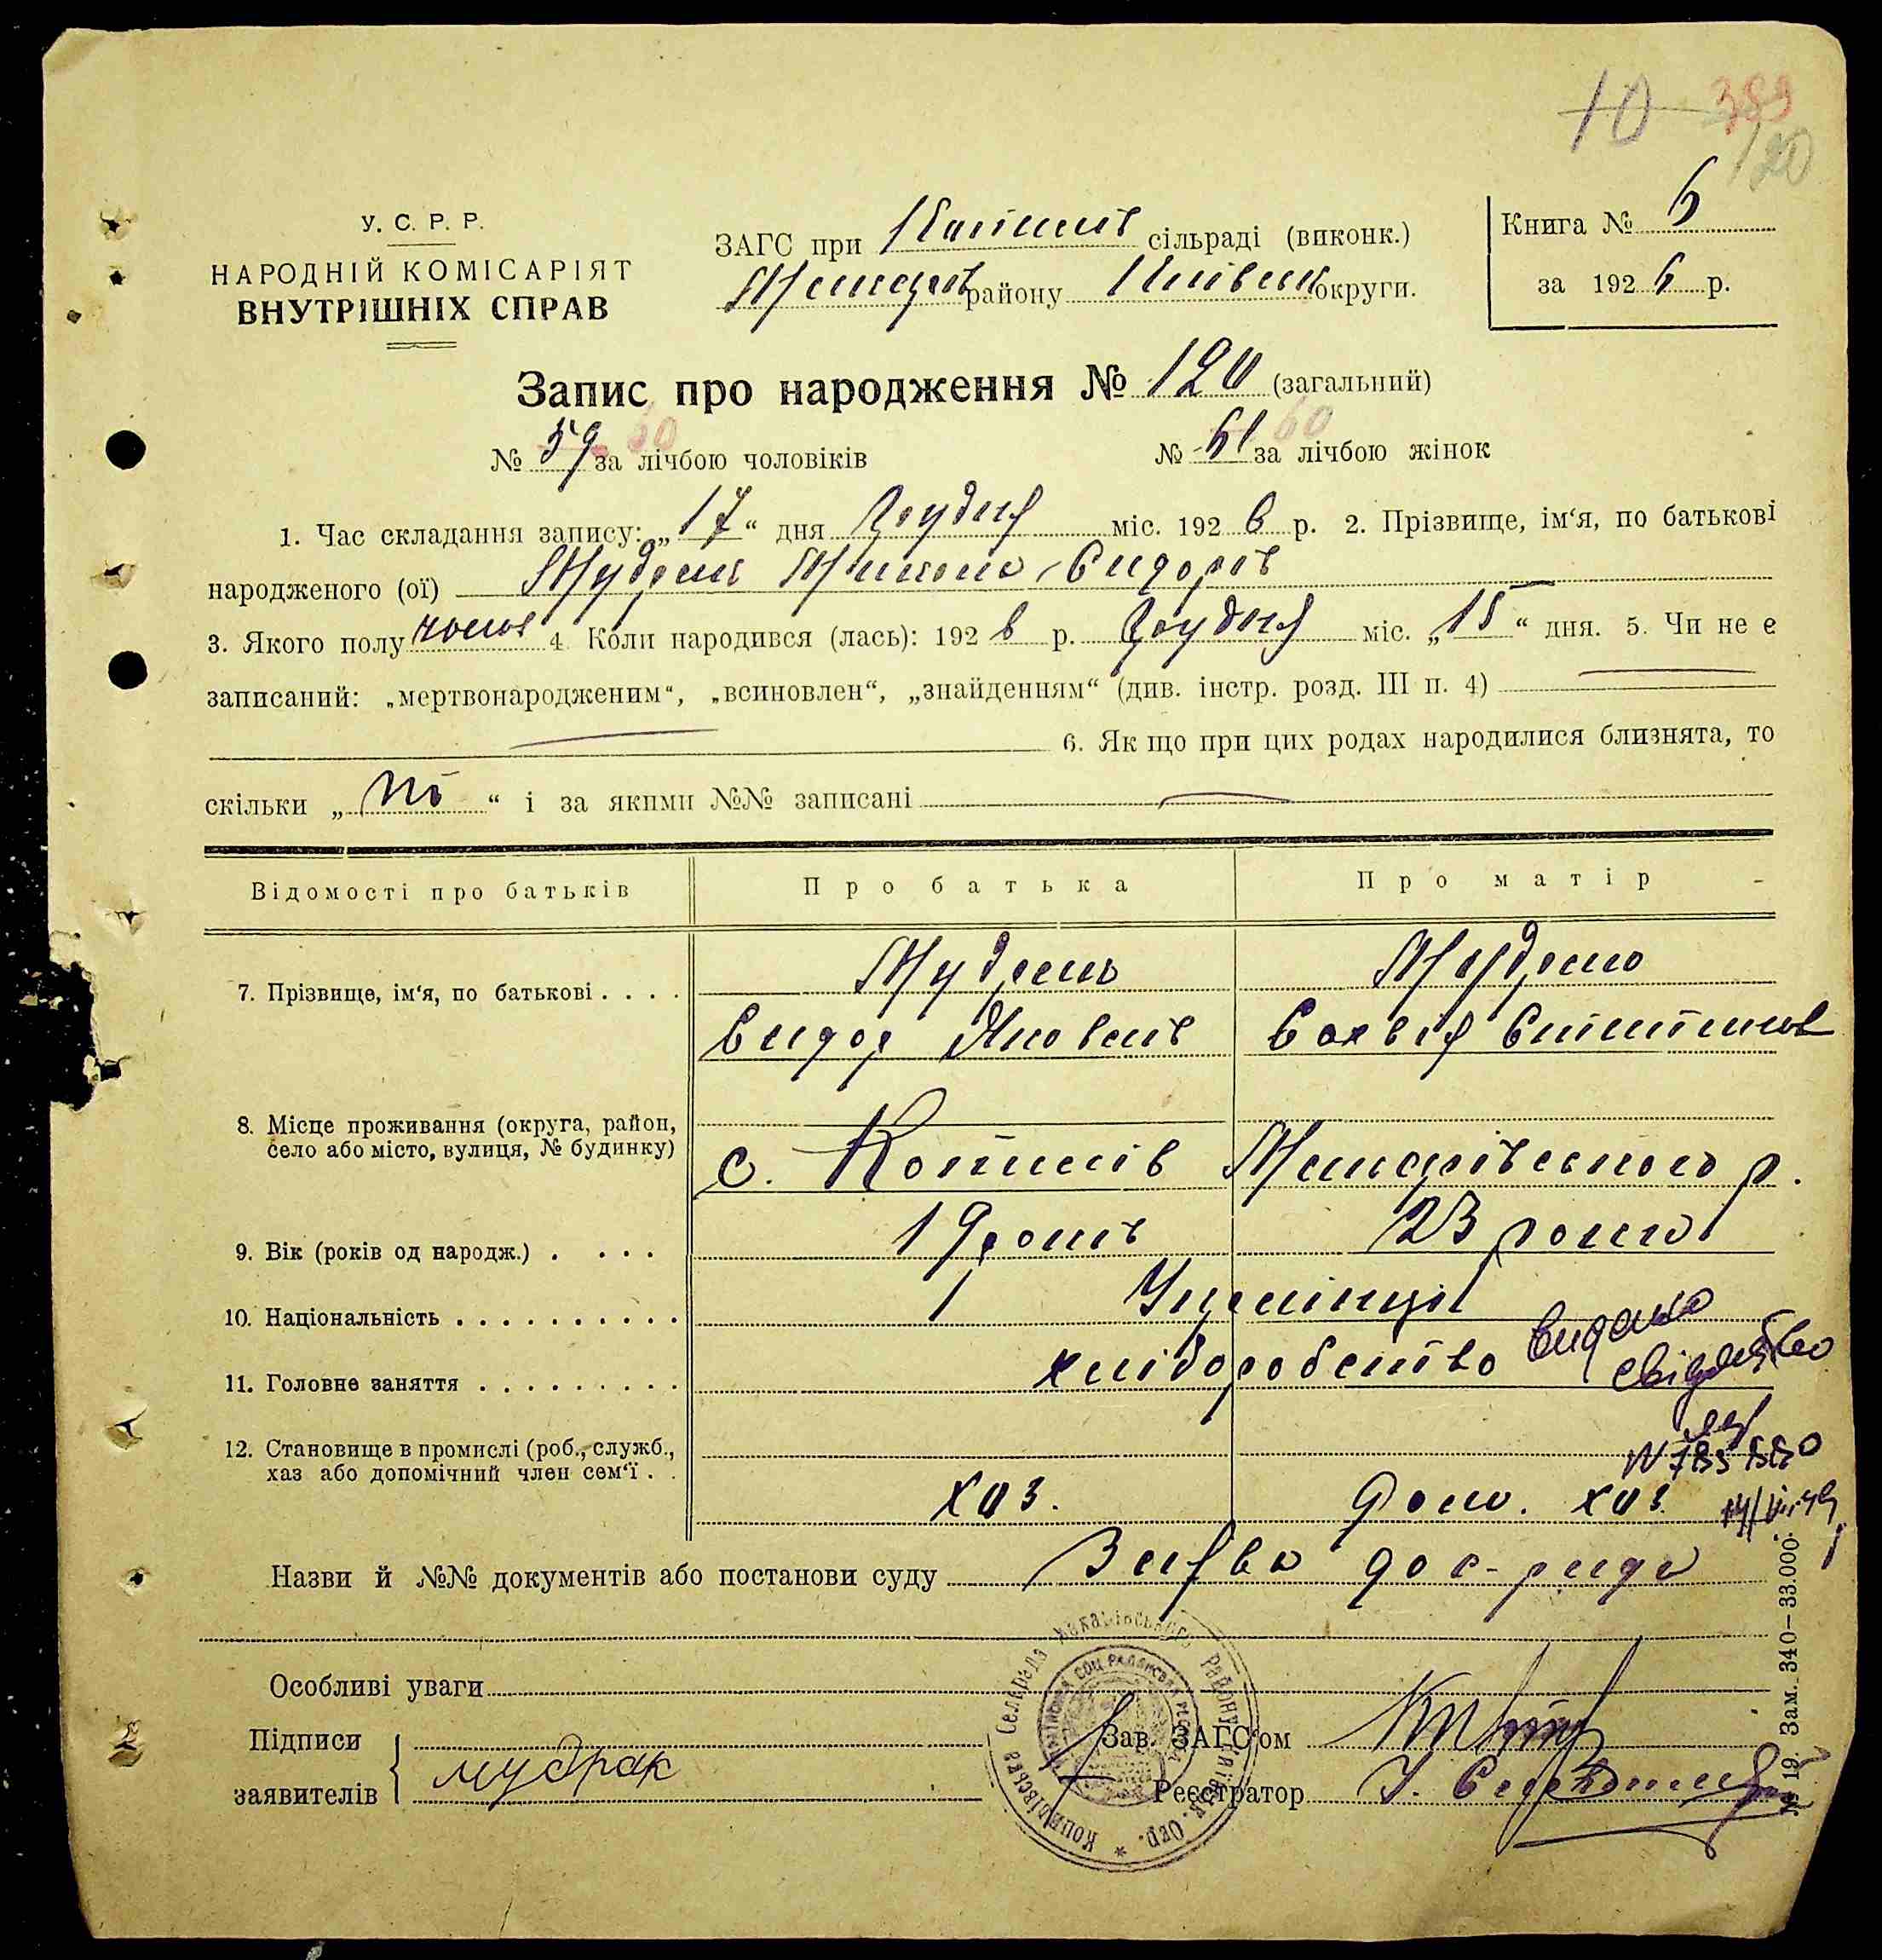 10 389
120
У. С. Р. Р.
НАРОДНІЙ КОМІСАРІЯТ
ВНУТРІШНІХ СПРАВ
ЗАГС при Копилів сільраді (виконк.)
Макарів району Київськ округи.
Книга № 6
за 192 6 р.
Запис про народження № 120 (загальний)
№ 59 60 за лічбою чоловіків № 61 60 за лічбою жінок
1. Час складання запису: „ 17 “ дня Грудня міс. 192 6 р. 2. Прізвище, ім‘я, по батькові
народженого (ої) Мудрак Микола Сидорів
3. Якого полу чолов 4. Коли народився (лась): 192 6 р. Грудня міс. „ 15 “ дня. 5. Чи не є
записаний: „мертвонародженим“, „всиновлен“, „знайденням“ (див. інстр. розд. III п. 4)
6. Як що при цих родах народилися близнята, то
скільки „ ні “ і за якими №№ записані
Відомості про батьків Про батька Про матір
7. Прізвище, ім‘я, по батькові . . . . Мудрак Мудрак
Сидор Яковлів
8. Місце проживання (округа, район,
село або місто, вулиця, № будинку)
с. Копилів Макарівського р.
9. Вік (років од народж.) . . . . 19 років 23 роки
10. Національність . . . . . . . . . . Українці
11. Головне заняття . . . . . . . . . хліборобство
Видано
свідоцтво
12. Становище в промислі (роб., служб.,
хаз або допомічний член сем‘ї . .
хаз. дом. хаз.
Назви й №№ документів або постанови суду Заява дос-рада
Особливі уваги
Підписи
заявителів { мудрак
Зав. ЗАГС‘ом
Реєстратор
Копилівська Сельрада Макарівського району Київськ. Окр.
№ 19. Зам. 340—33.000.